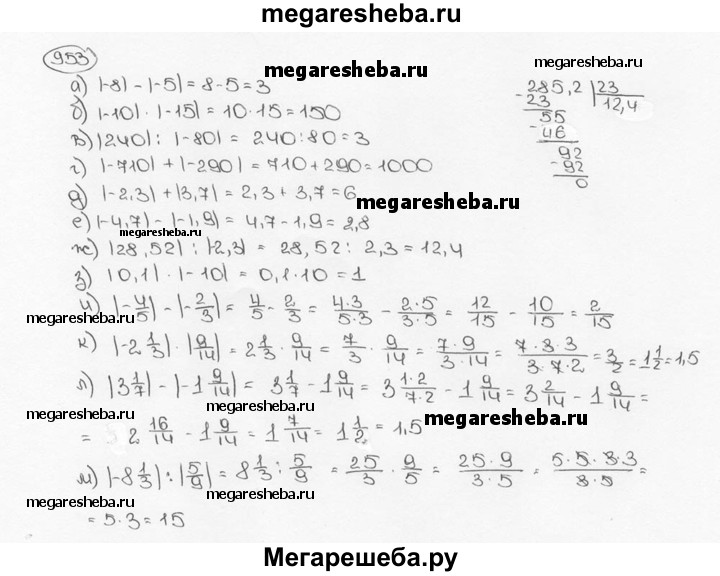 megaresheba.ru
953
а) |-8| - |-5| = 8 - 5 = 3
б) |-10| · |-15| = 10 · 15 = 150
в) |240| : |-80| = 240 : 80 = 3
г) |-710| + |-290| = 710 + 290 = 1000
д) |-2,3| + |3,7| = 2,3 + 3,7 = 6
е) |-4,7| - |-1,9| = 4,7 - 1,9 = 2,8
ж) |28,52| : |-2,3| = 28,52 : 2,3 = 12,4
з) |0,1| · |-10| = 0,1 · 10 = 1
и) |-4/5| - |-2/3| = 4/5 - 2/3 = 4·3/5·3 - 2·5/3·5 = 12/15 - 10/15 = 2/15
к) |-2 1/3| · |9/14| = 2 1/3 · 9/14 = 7/3 · 9/14 = 7·9/3·14 = 7·3·3/3·7·2 = 3/2 = 1 1/2 = 1,5
л) |3 1/7| - |-1 9/14| = 3 1/7 - 1 9/14 = 3 1·2/7·2 - 1 9/14 = 3 2/14 - 1 9/14 =
= 2 16/14 - 1 9/14 = 1 7/14 = 1 1/2 = 1,5
м) |-8 1/3| : |5/9| = 8 1/3 : 5/9 = 25/3 · 9/5 = 25·9/3·5 = 5·5·3·3/3·5 =
= 5·3 = 15
285,2 | 23
- 23 | 12,4
55
- 46
92
- 92
0
megaresheba.ru
megaresheba.ru
megaresheba.ru
megaresheba.ru
megaresheba.ru
megaresheba.ru
megaresheba.ru
megaresheba.ru
megaresheba.ru
Мегарешеба.ру